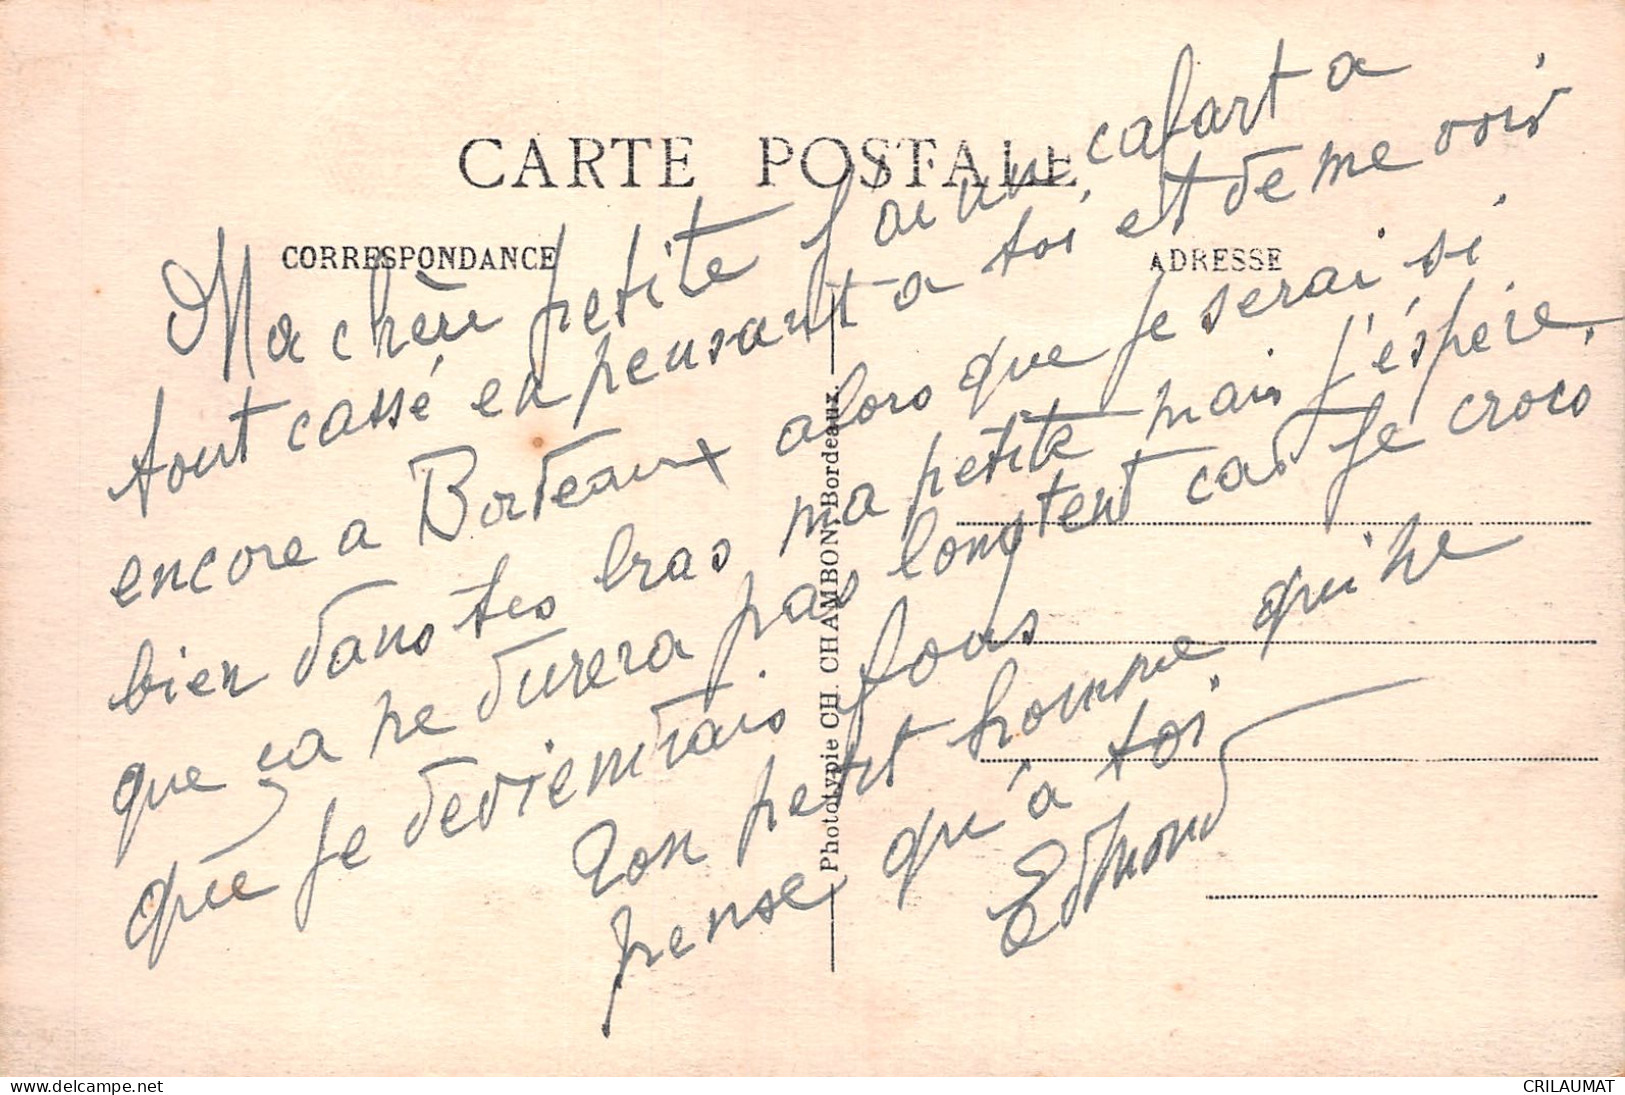 CARTE POSTALE
CORRESPONDANCE
ADRESSE
Ma chère petite j'ai un cafart a
tout cassé en pensant a toi et de me voir
encore a Bordeaux alors que je serai si
bien dans tes bras ma petite mais j'éspére
que ça ne durera pas longtent car je crois
que je deviendrais fous
Ton petit homme qui ne
pense qu'a toi.
Edmond
Phototypie CH. CHAMBON, Bordeaux.
CRILAUMAT